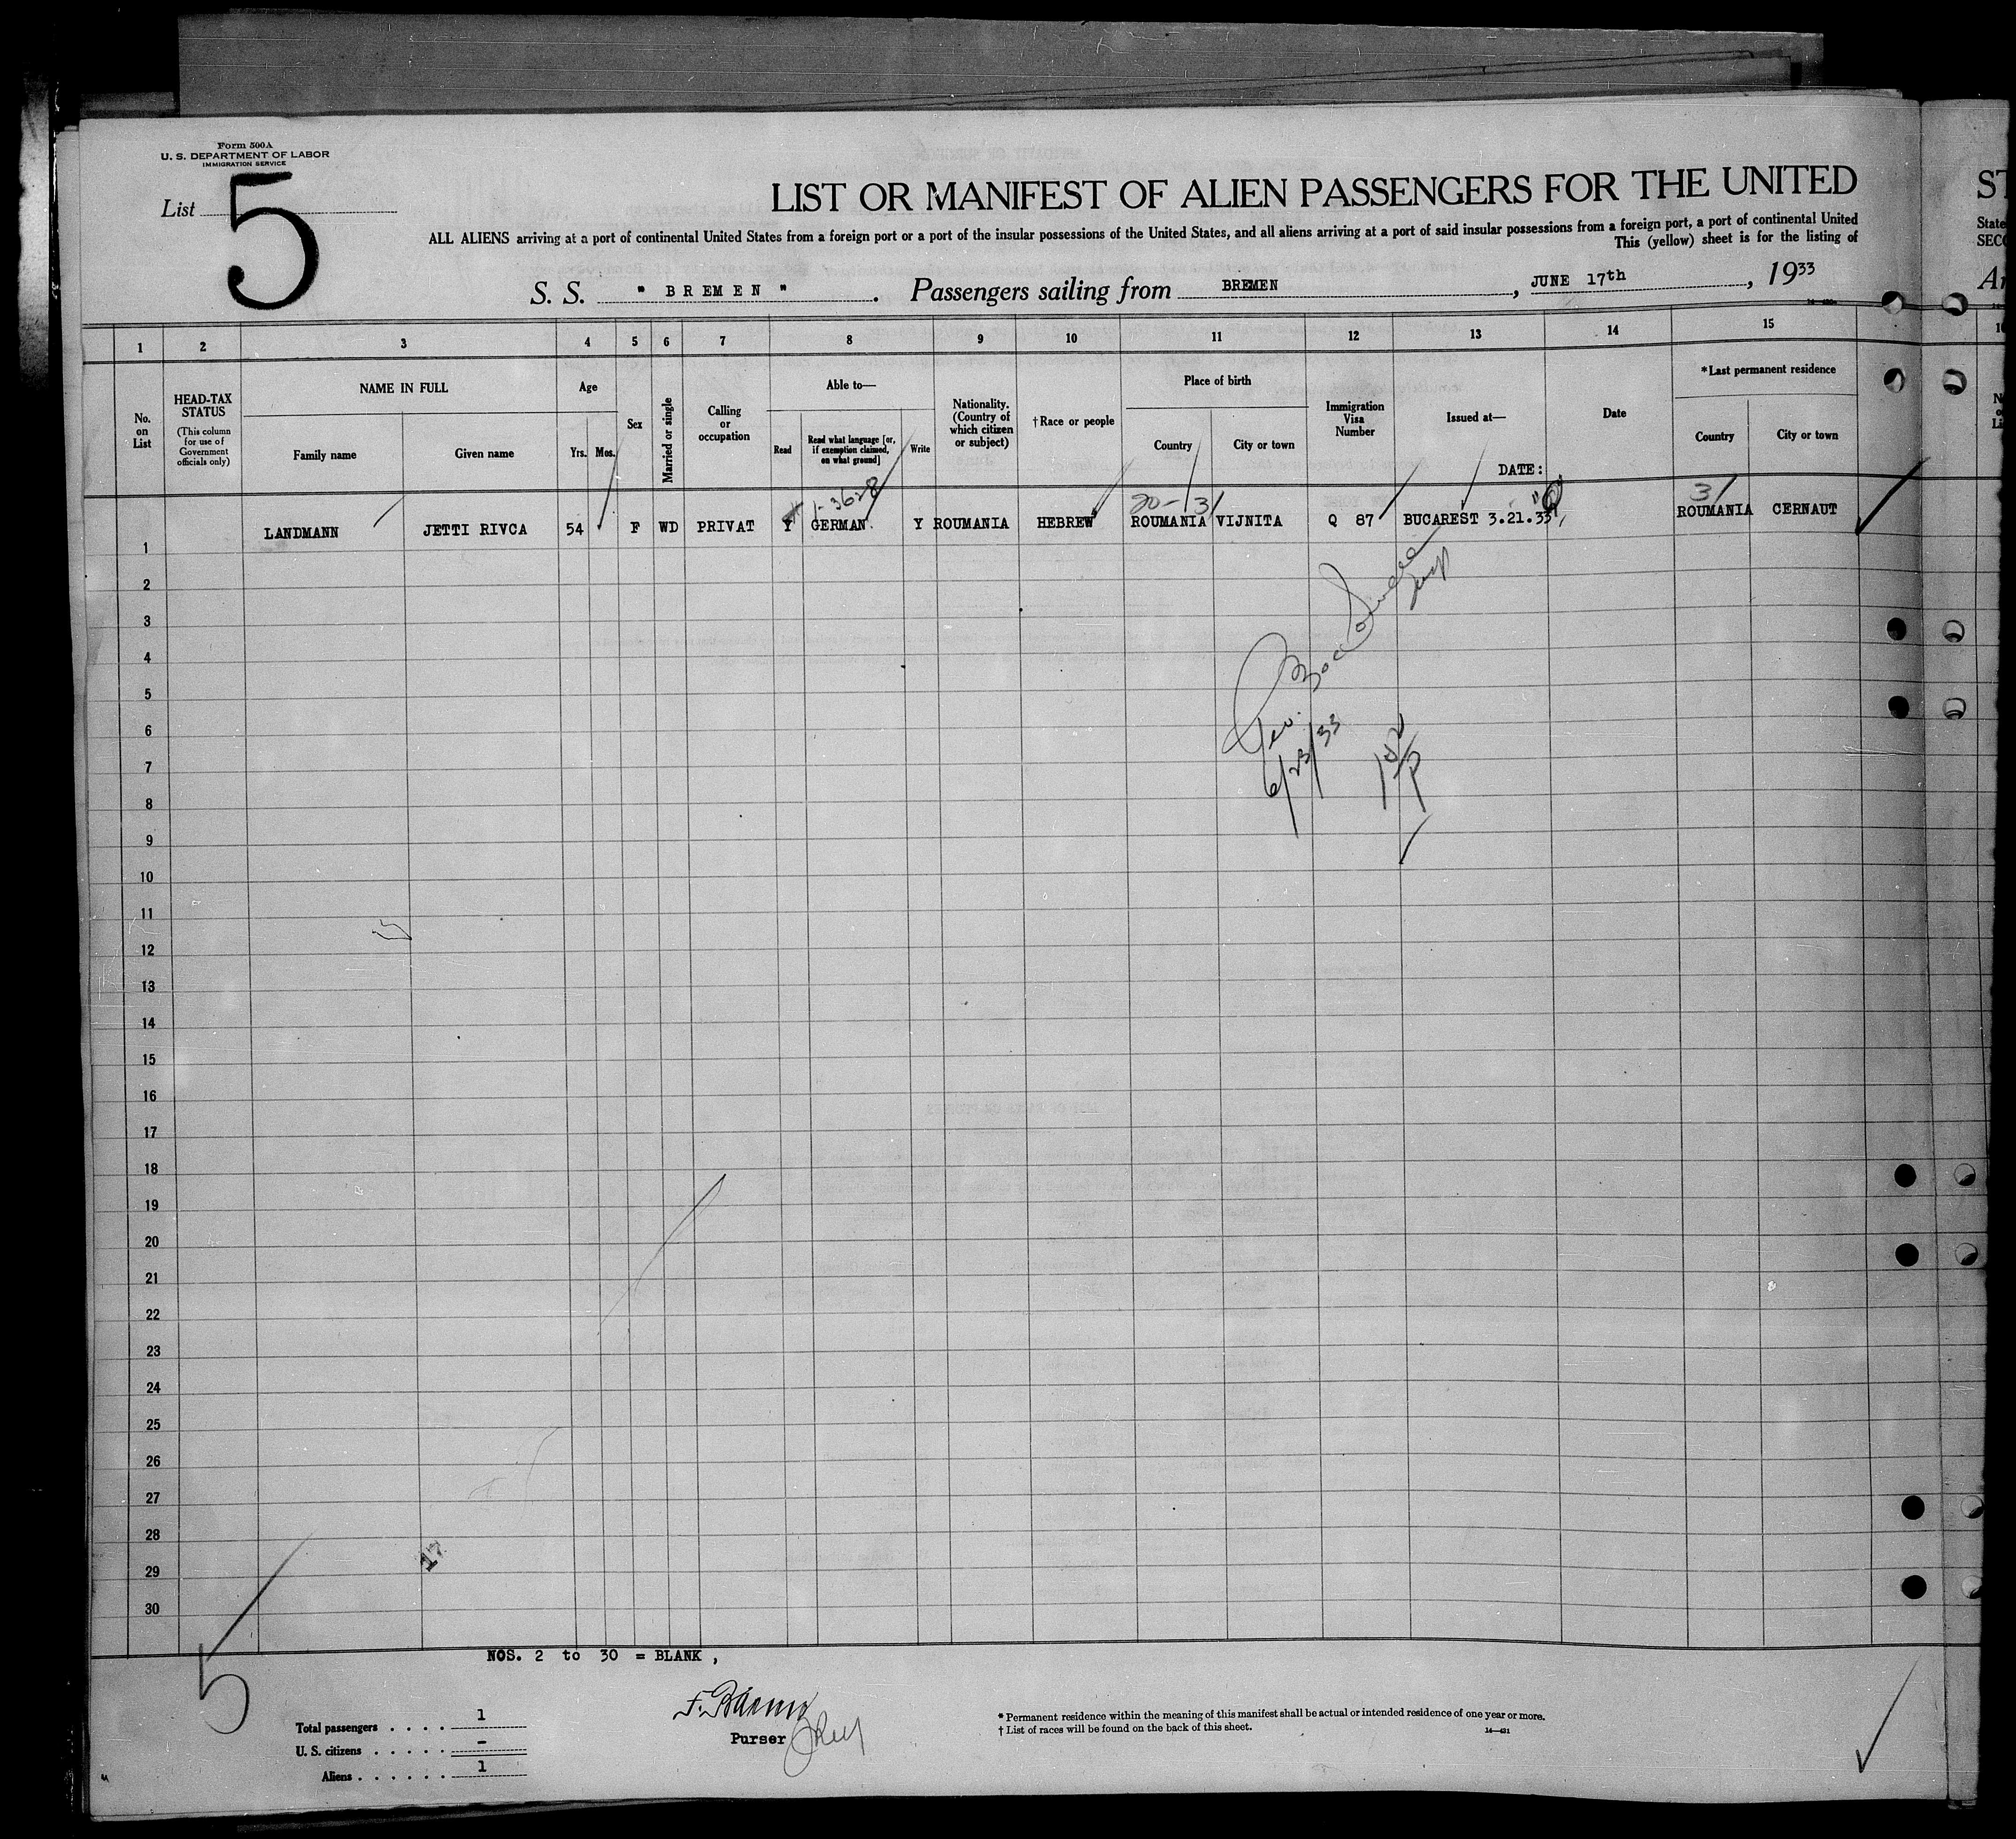 Form 500A
U. S. DEPARTMENT OF LABOR
IMMIGRATION SERVICE
List 5
LIST OR MANIFEST OF ALIEN PASSENGERS FOR THE UNITED
ALL ALIENS arriving at a port of continental United States from a foreign port or a port of the insular possessions of the United States, and all aliens arriving at a port of said insular possessions from a foreign port, a port of continental United
This (yellow) sheet is for the listing of
S. S. " BREMEN " . Passengers sailing from BREMEN , JUNE 17th , 1933
ST
State
SECO
1 2 3 4 5 6 7 8 9 10 11 12 13 14 15
No. on List
HEAD-TAX STATUS
(This column for use of Government officials only)
NAME IN FULL
Family name
Given name
Age
Yrs. Mos.
Sex
Married or single
Calling or occupation
Able to—
Read
Read what language [or, if exemption claimed, on what ground]
Write
Nationality. (Country of which citizen or subject)
†Race or people
Place of birth
Country
City or town
Immigration Visa Number
Issued at—
DATE:
Date
*Last permanent residence
Country
City or town
1 LANDMANN JETTI RIVCA 54 F WD PRIVAT Y GERMAN Y ROUMANIA HEBREW ROUMANIA VIJNITA Q 87 BUCAREST 3.21.33 ROUMANIA CERNAUT
2
3
4
5
6
6/23/33
7
8
9
10
11
12
13
14
15
16
17
18
19
20
21
22
23
24
25
26
27
28
29
30
17
5
NOS. 2 to 30 = BLANK ,
Total passengers . . . . 1
U. S. citizens . . . . . –
Aliens . . . . . . 1
Purser
* Permanent residence within the meaning of this manifest shall be actual or intended residence of one year or more.
† List of races will be found on the back of this sheet.